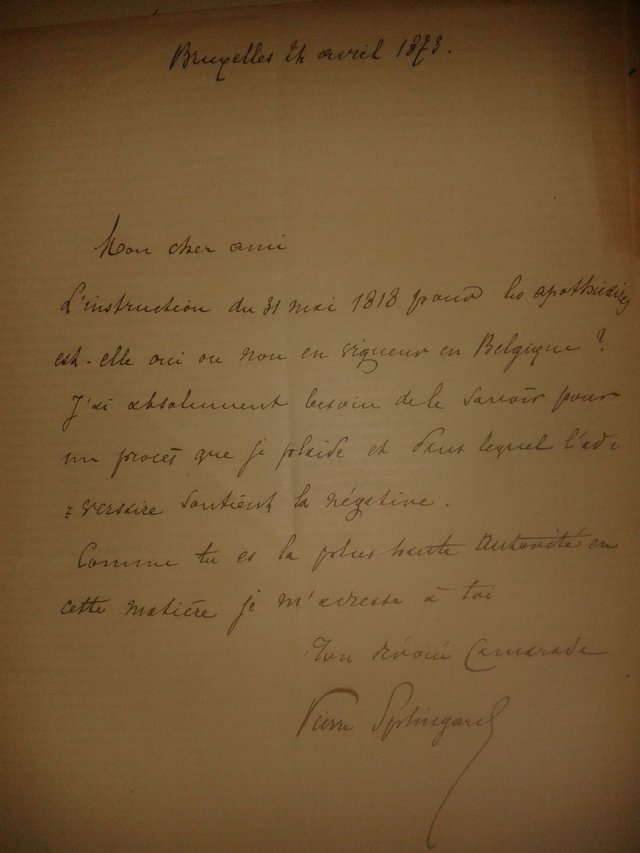 Bruxelles 24 avril 1873.
Mon cher ami
L'instruction du 31 mai 1818 pour les apothicaires
est-elle oui ou non en vigueur en Belgique ?
J'ai absolument besoin de le savoir pour
un procès que je plaide et dans lequel l'ad-
versaire soutient la négative.
Comme tu es la plus haute autorité en
cette matière je m'adresse à toi
Ton dévoué Camarade
Pierre Splingard